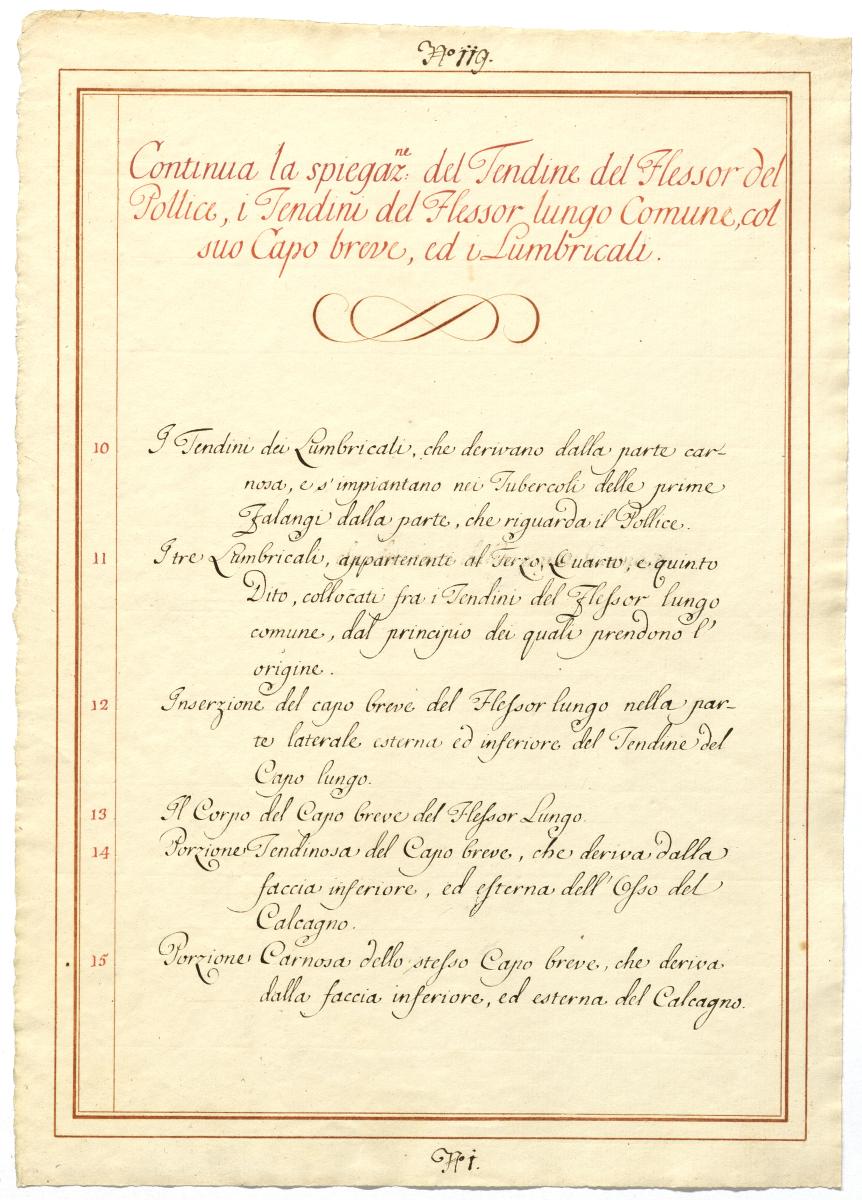 N.º 119.
Continua la spiegaz.ne: del Tendine del Flessor del
Pollice, i Tendini del Flessor lungo Comune, col
suo Capo breve, ed i Lumbricali.
10 I Tendini dei Lumbricali, che derivano dalla parte car-
nosa, e s'impiantano nei Tubercoli delle prime
Falangi dalla parte, che riguarda il Pollice.
11 I tre Lumbricali, appartenente al Terzo, Quarto, e quinto
Dito, collocati fra i Tendini del Flessor lungo
comune, dal principio dei quali prendono l'
origine.
12 Inserzione del capo breve del Flessor lungo nella par-
te laterale esterna ed inferiore del Tendine del
Capo lungo.
13 Il Corpo del Capo breve del Flessor Lungo.
14 Porzione Tendinosa del Capo breve, che deriva dalla
faccia inferiore, ed esterna dell'Osso del
Calcagno.
15 Porzione Carnosa dello stesso Capo breve, che deriva
dalla faccia inferiore, ed esterna del Calcagno.
N.º 1.